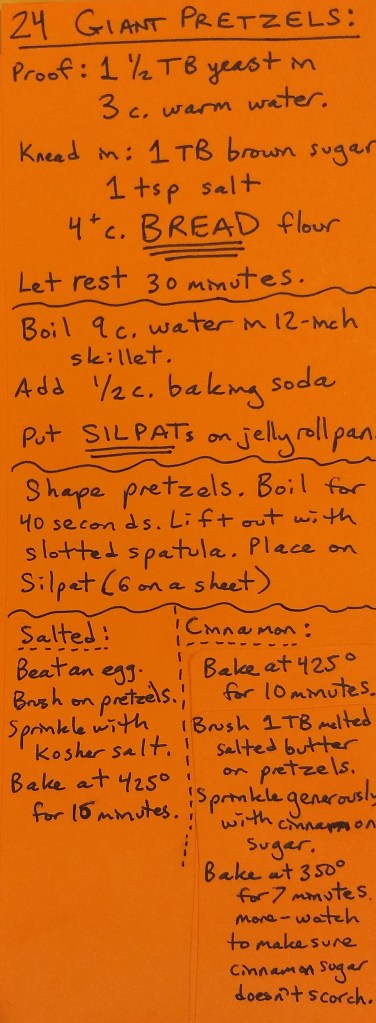 24 GIANT PRETZELS:
Proof: 1 1/2 TB yeast in
3 c. warm water.
Knead in: 1 TB brown sugar
1 tsp salt
4+ c. BREAD flour
Let rest 30 minutes.
Boil 9 c. water in 12-inch
skillet.
Add 1/2 c. baking soda
Put SILPATs on jelly roll pan.
Shape pretzels. Boil for
40 seconds. Lift out with
slotted spatula. Place on
Silpat (6 on a sheet)
Salted:
Beat an egg.
Brush on pretzels.
Sprinkle with
Kosher salt.
Bake at 425°
for 15 minutes.
Cinnamon:
Bake at 425°
for 10 minutes.
Brush 1 TB melted
salted butter
on pretzels.
Sprinkle generously
with cinnamon
sugar.
Bake at 350°
for 7 minutes
more - watch
to make sure
cinnamon sugar
doesn't scorch.